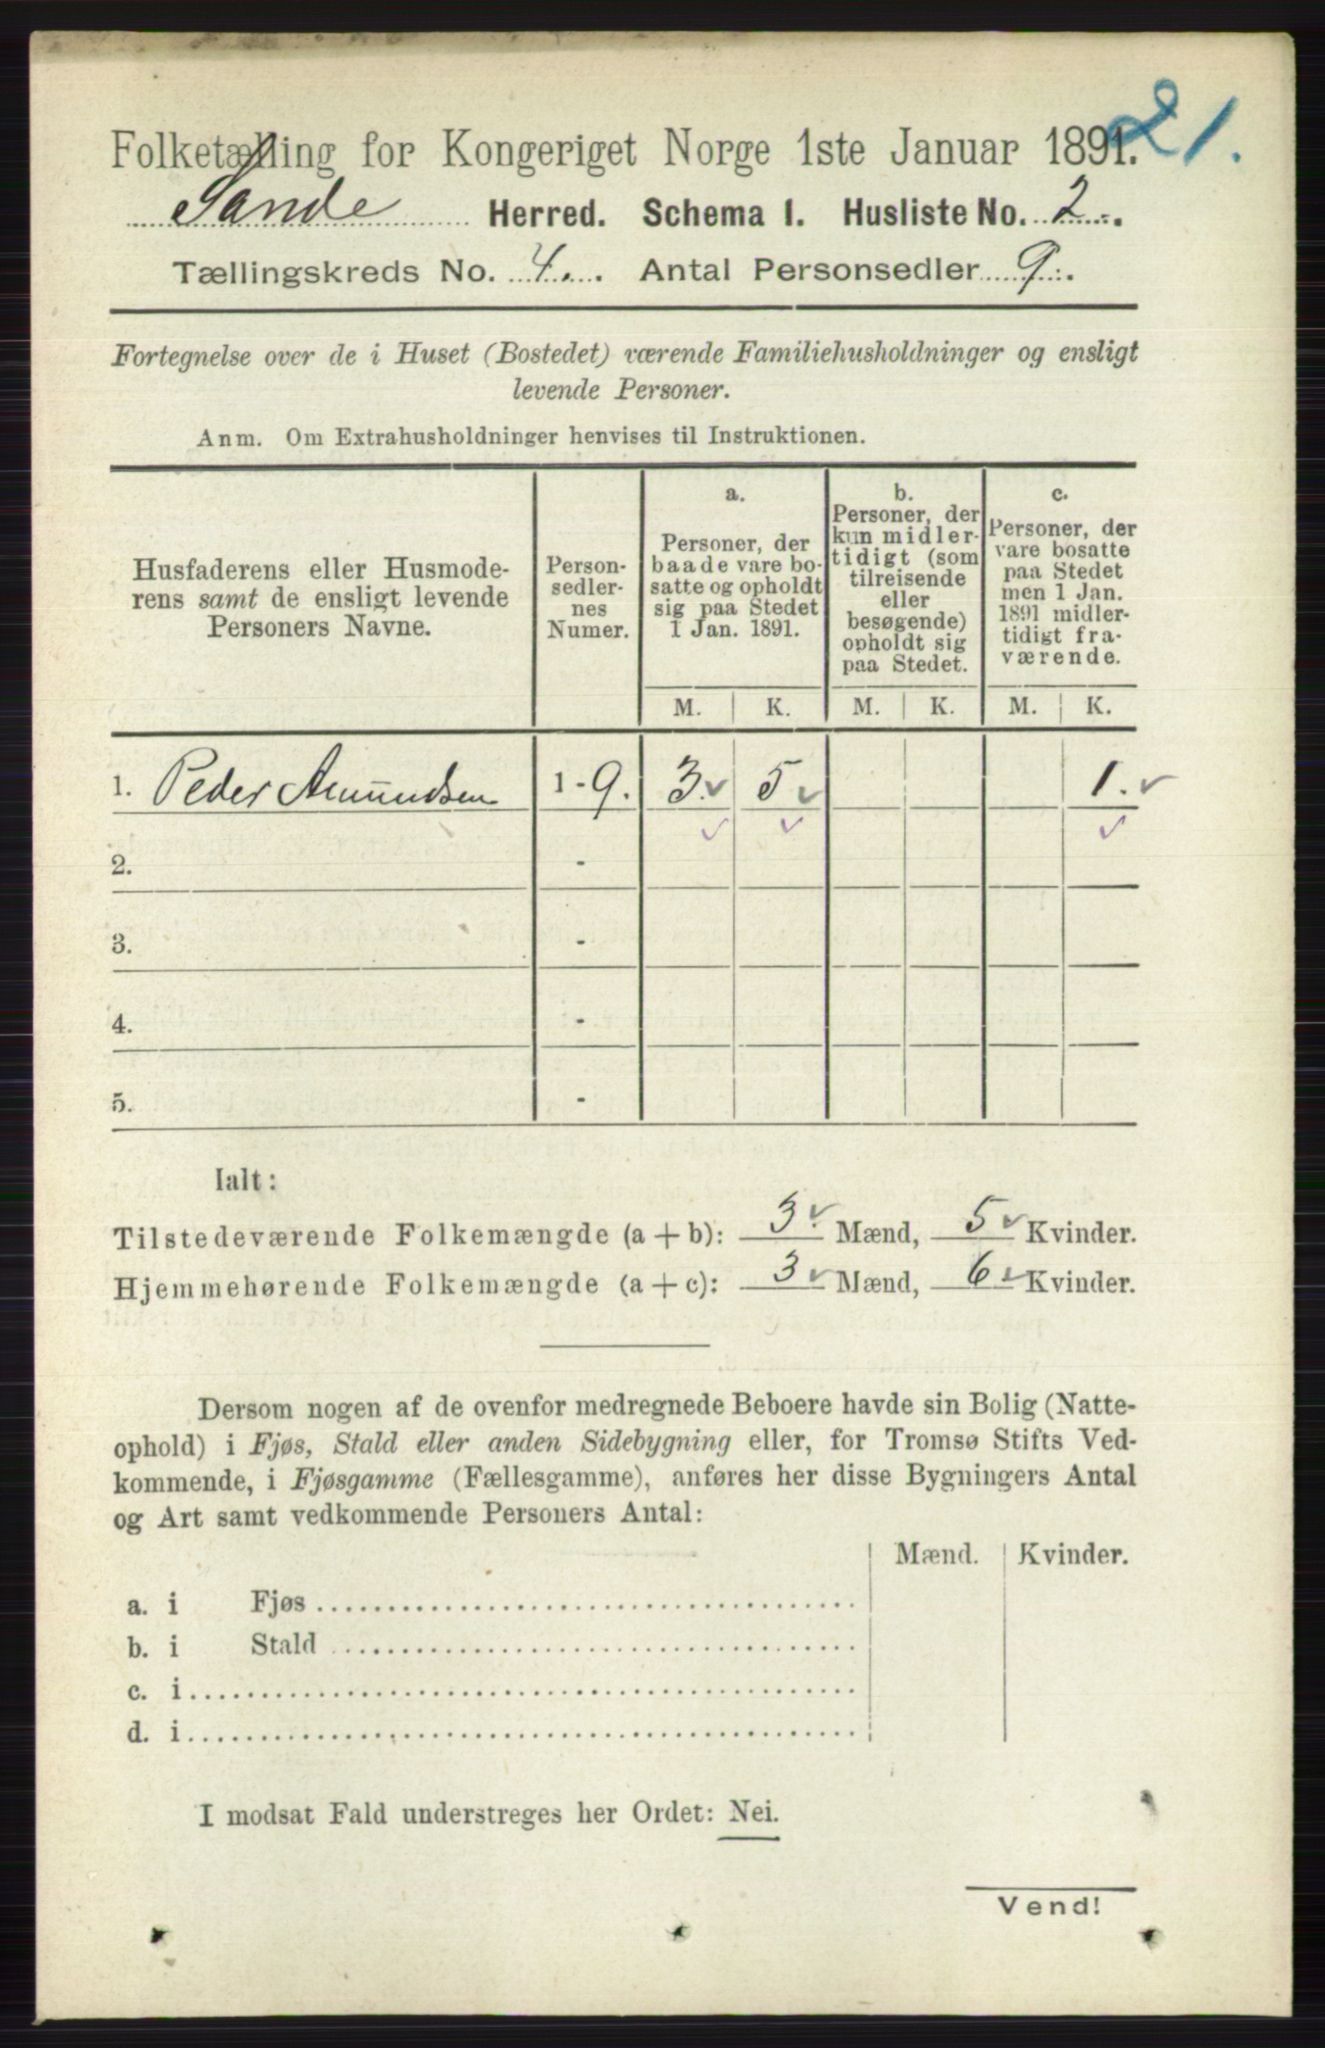 21.
Folketælling for Kongeriget Norge 1ste Januar 1891.
Sande Herred. Schema 1. Husliste No. 2.
Tællingskreds No. 4. Antal Personsedler 9.
Fortegnelse over de i Huset (Bostedet) værende Familiehusholdninger og ensligt
levende Personer.
Anm. Om Extrahusholdninger henvises til Instruktionen.
Husfaderens eller Husmode-
rens samt de ensligt levende
Personers Navne.
Person-
sedler-
nes
Numer.
a.
Personer, der
baade vare bo-
satte og opholdt
sig paa Stedet
1 Jan. 1891.
b.
Personer, der
kun midler-
tidigt (som
tilreisende
eller
besøgende)
opholdt sig
paa Stedet.
c.
Personer, der
vare bosatte
paa Stedet
men 1 Jan.
1891 midler-
tidigt fra-
værende.
M. K. M. K. M. K.
1. Peder Amundsen 1 - 9. 3. 5 1.
2. -
3. -
4. -
5. -
Ialt:
Tilstedeværende Folkemængde (a + b): 3 Mænd, 5 Kvinder.
Hjemmehørende Folkemængde (a + c): 3 Mænd, 6 Kvinder.
Dersom nogen af de ovenfor medregnede Beboere havde sin Bolig (Natte-
ophold) i Fjøs, Stald eller anden Sidebygning eller, for Tromsø Stifts Ved-
kommende, i Fjøsgamme (Fællesgamme), anføres her disse Bygningers Antal
og Art samt vedkommende Personers Antal:
Mænd. Kvinder.
a. i Fjøs
b. i Stald
c. i
d. i
I modsat Fald understreges her Ordet: Nei.
Vend!